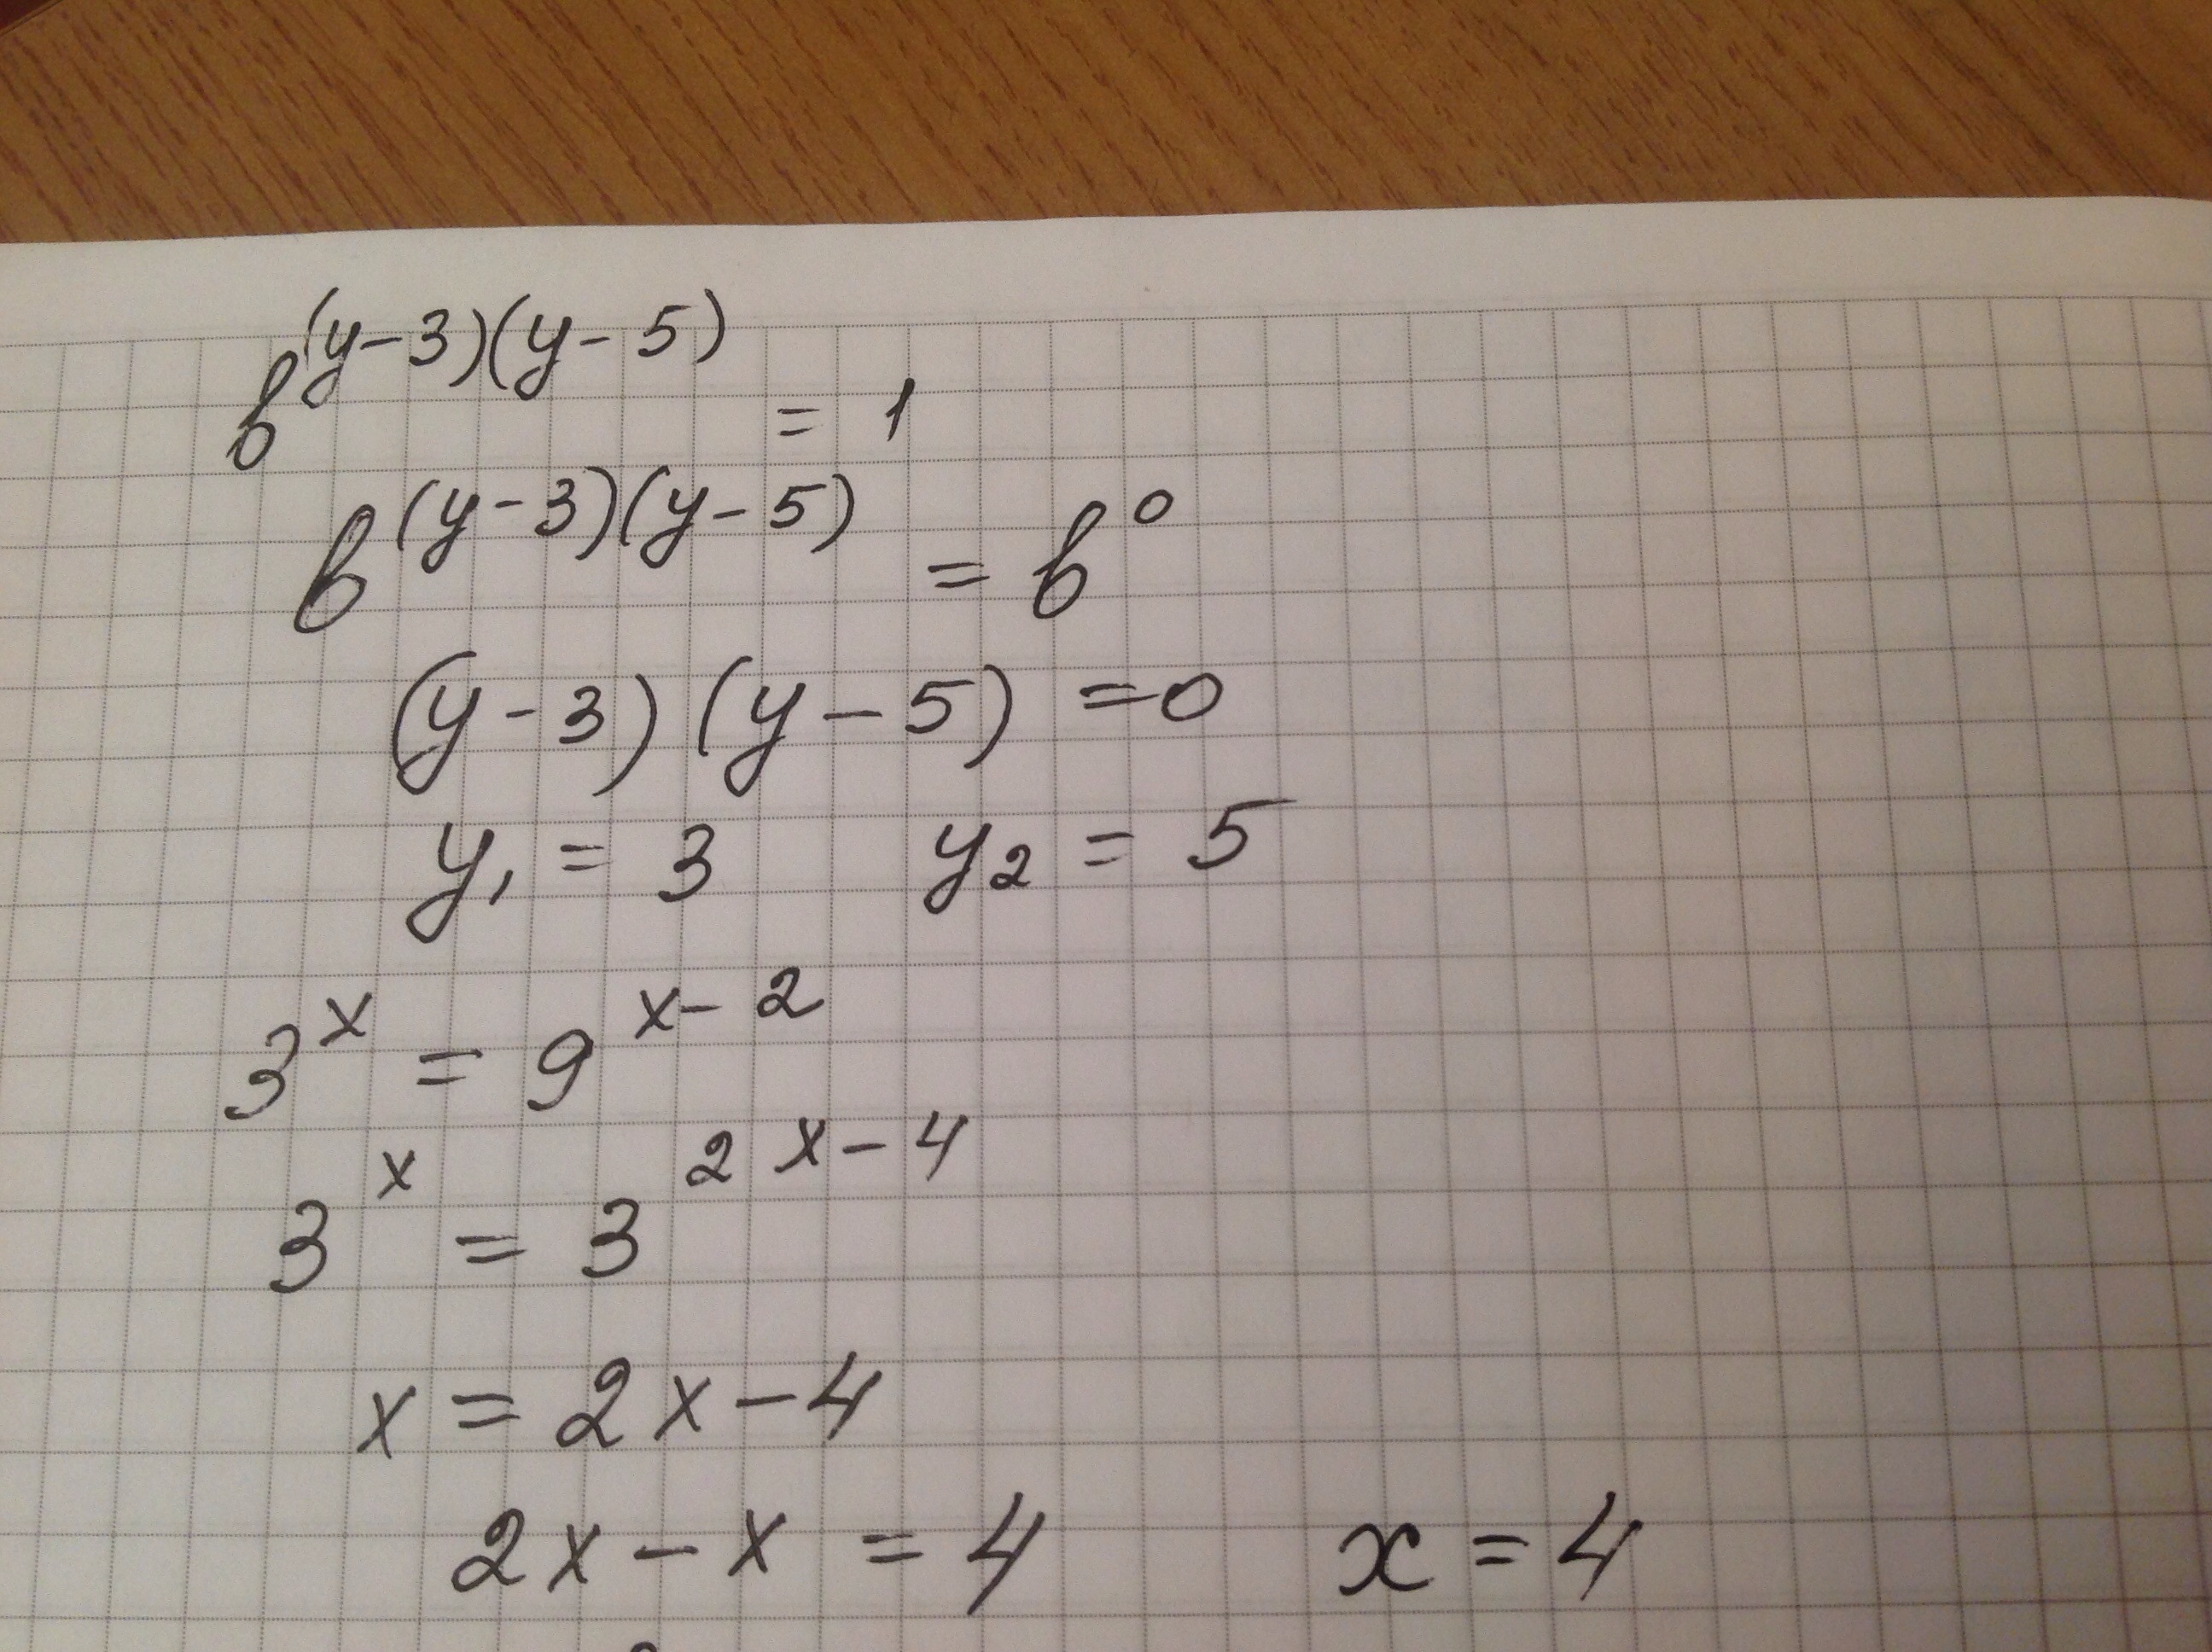 b^{(y-3)(y-5)} = 1
b^{(y-3)(y-5)} = b^0
(y-3)(y-5)=0
y_1 = 3 y_2 = 5
3^x = 9^{x-2}
3^x = 3^{2x-4}
x = 2x-4
2x-x = 4 x = 4